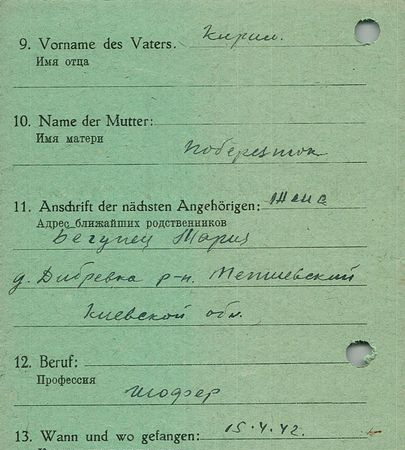 9. Vorname des Vaters. Кирил.
Имя отца
10. Name der Mutter:
Имя матери
11. Anschrift der nächsten Angehörigen: Жена
Адрес ближайших родственников
Бегунец Мария
д. Дибревка р-н.
Киевской обл.
12. Beruf:
Профессия
шофер
13. Wann und wo gefangen: 15.4.42.